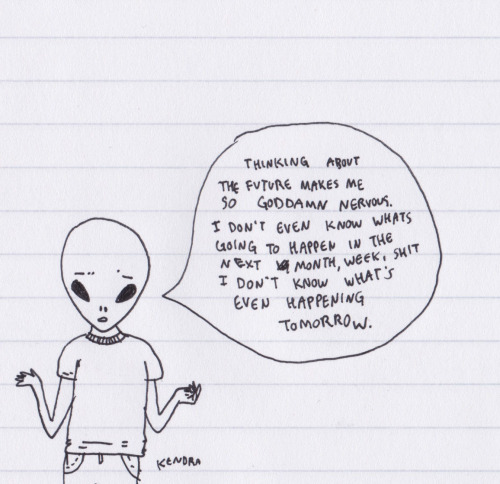 THINKING ABOUT
THE FUTURE MAKES ME
SO GODDAMN NERVOUS.
I DON'T EVEN KNOW WHATS
GOING TO HAPPEN IN THE
NEXT MONTH, WEEK, SHIT
I DON'T KNOW WHAT'S
EVEN HAPPENING
TOMORROW.
KENDRA